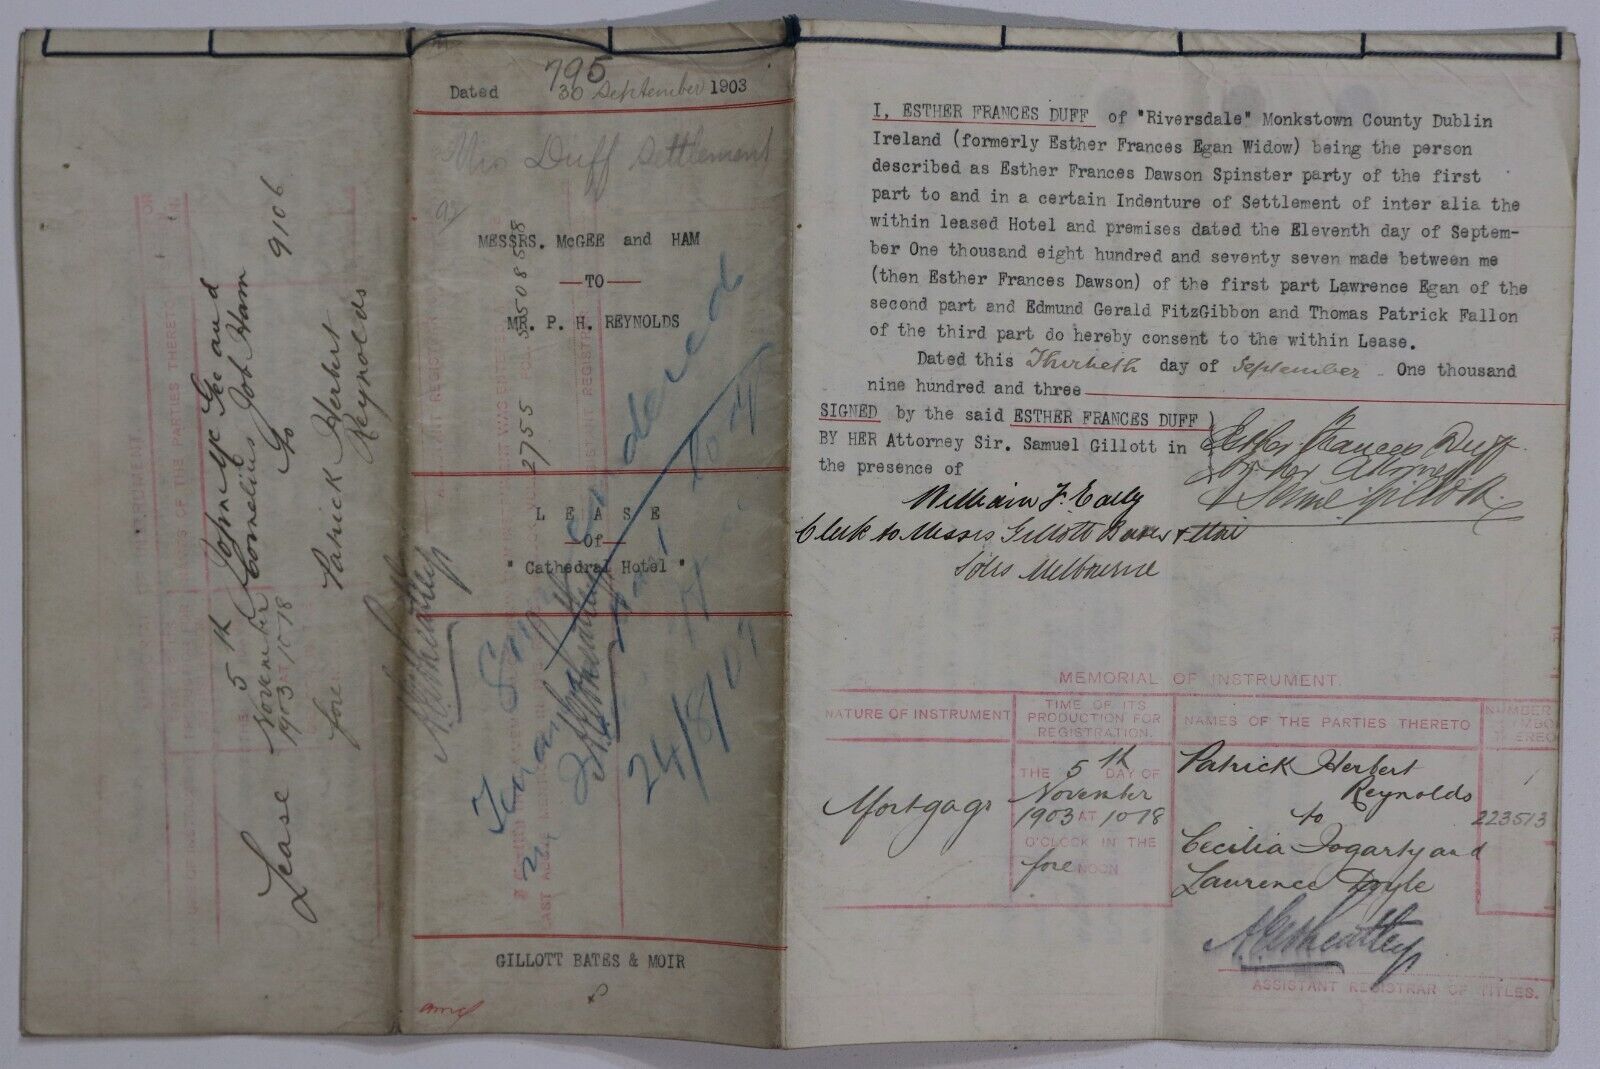 795
Dated 30 September 1903
Mrs Duff Settlement
MESSRS. McGEE and HAM
TO
MR. P. H. REYNOLDS
LEASE
Of
"Cathedral Hotel"
24/8/07
GILLOTT BATES & MOIR
Lease
5th
November
1903 AT 1018
fore
John McGee and
Cornelius Job Ham
to
Patrick Herbert
Reynolds
9106
I, ESTHER FRANCES DUFF of "Riversdale" Monkstown County Dublin
Ireland (formerly Esther Frances Egan Widow) being the person
described as Esther Frances Dawson Spinster party of the first
part to and in a certain Indenture of Settlement of inter alia the
within leased Hotel and premises dated the Eleventh day of Septem-
ber One thousand eight hundred and seventy seven made between me
(then Esther Frances Dawson) of the first part Lawrence Egan of the
second part and Edmund Gerald FitzGibbon and Thomas Patrick Fallon
of the third part do hereby consent to the within Lease.
Dated this Thirtieth day of September One thousand
nine hundred and three
SIGNED by the said ESTHER FRANCES DUFF )
BY HER Attorney Sir. Samuel Gillott in
the presence of
Esther Frances Duff
by her Attorney
William F. Eally
Clerk to Messrs Gillott Bates & Moir
Solrs Melbourne
MEMORIAL OF INSTRUMENT.
NATURE OF INSTRUMENT
TIME OF ITS
PRODUCTION FOR
REGISTRATION.
NAMES OF THE PARTIES THERETO
NUMBER
Mortgage
THE 5th DAY OF
November
1903 AT 1018
O'CLOCK IN THE
fore NOON
Patrick Herbert
Reynolds
to
Cecilia Fogarty and
Laurence Doyle
223513
ASSISTANT REGISTRAR OF TITLES.